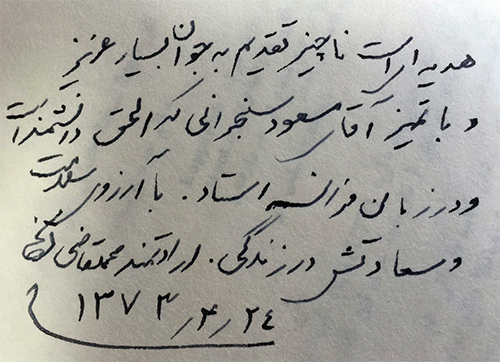 هدیه‌ای است ناچیز تقدیم به جوان بسیار عزیز
و با تمیز آقای مسعود سنجرانی که الحق دانشمند است
و در زبان فرانسه استاد. با آرزوی سلامت
و سعادتش در زندگی. ارادتمند محمد قاضی
۱۳۷۳/۴/۲۴